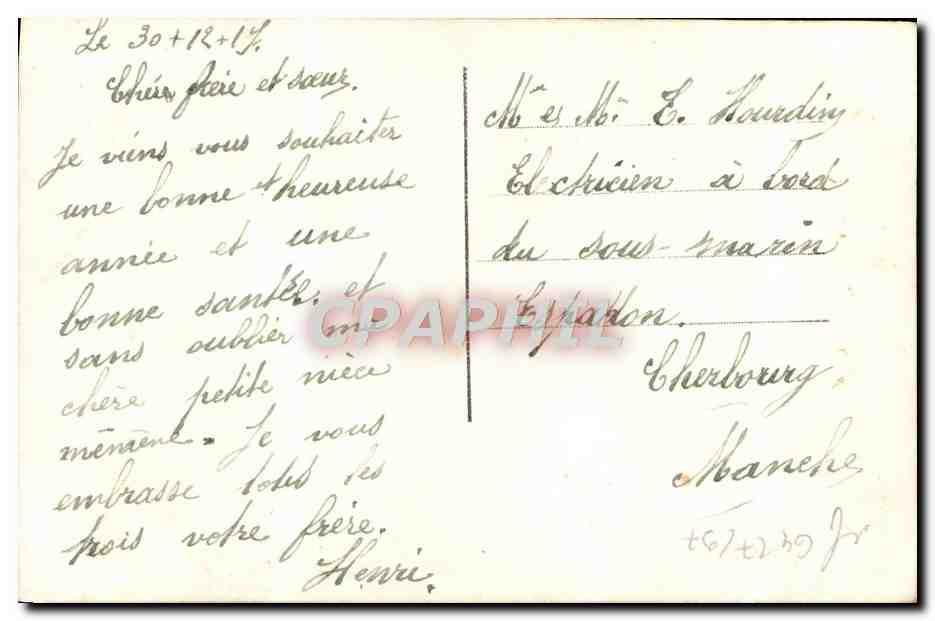 Le 30+12+17.
Chère frère et sœur.
Je viens vous souhaiter
une bonne et heureuse
année et une
bonne santée. et
sans oublier ma
chère petite nièce
mémène. Je vous
embrasse tous les
trois votre frère.
Henri.
Mr et Mme E. Hourdin
Electricien à bord
du sous-marin
Espadon.
Cherbourg
Manche
CPAPHIL